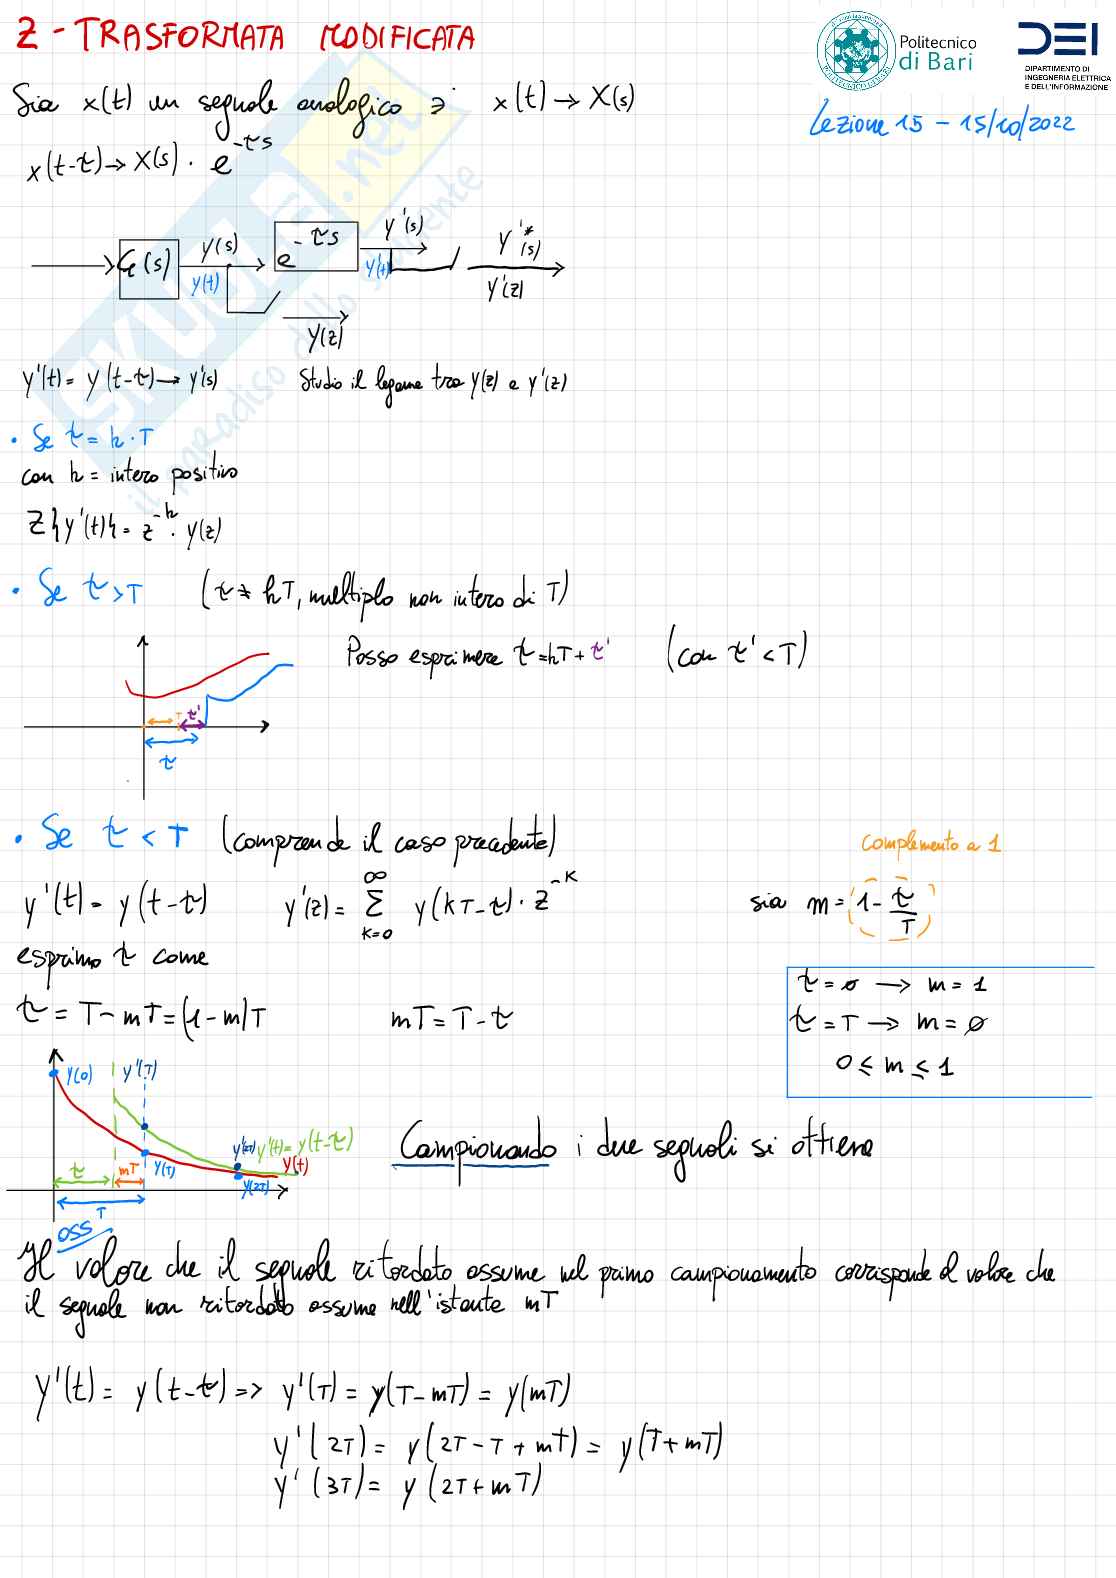 Z - TRASFORMATA MODIFICATA
Politecnico di Bari
DEI
DIPARTIMENTO DI
INGEGNERIA ELETTRICA
E DELL'INFORMAZIONE
Lezione 15 - 15/10/2022
Sia x(t) un segnale analogico ∋' x(t) → X(s)
x(t-τ) → X(s) · e^-τs
G(s) Y(s) y(t) e^-τs Y'(s) y'(t) Y'*(s) Y'(z)
Y(z)
y'(t) = y(t-τ) → y'(s) Studio il legame tra Y(z) e Y'(z)
• Se τ = h·T
con h = intero positivo
Z{y'(t)} = z^-h · Y(z)
• Se τ > T (τ ≠ hT, multiplo non intero di T)
Posso esprimere τ = hT + τ' (con τ' < T)
T τ'
τ
• Se τ < T (comprende il caso precedente)
complemento a 1
y'(t) = y(t-τ) y'(z) = ∞ Σ k=0 y(kT-τ) · z^-k sia m = (1 - τ/T)
esprimo τ come
τ = T - mT = (1-m)T mT = T - τ
τ = 0 → m = 1
τ = T → m = 0
0 ≤ m ≤ 1
y(0) y'(T)
y'(2T) y'(t) = y(t-τ)
τ mT y(T) y(t)
y(2T)
T
Campionando i due segnali si ottiene
OSS
Il valore che il segnale ritardato assume nel primo campionamento corrisponde al valore che
il segnale non ritardato assume nell'istante mT
y'(t) = y(t-τ) => y'(T) = y(T-mT) = y(mT)
y'(2T) = y(2T - T + mT) = y(T+mT)
y'(3T) = y(2T+mT)
SKUOLA.net
il paradiso dello studente